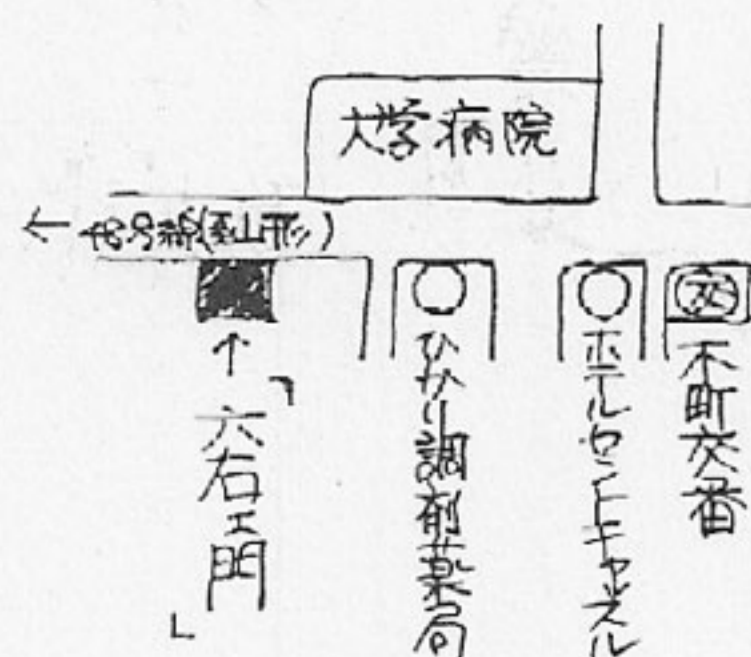 大学病院
← 48号線(至山形)
交
↑「六右エ門」
ひかり調剤薬局
ホテルセントキャッスル
木町交番